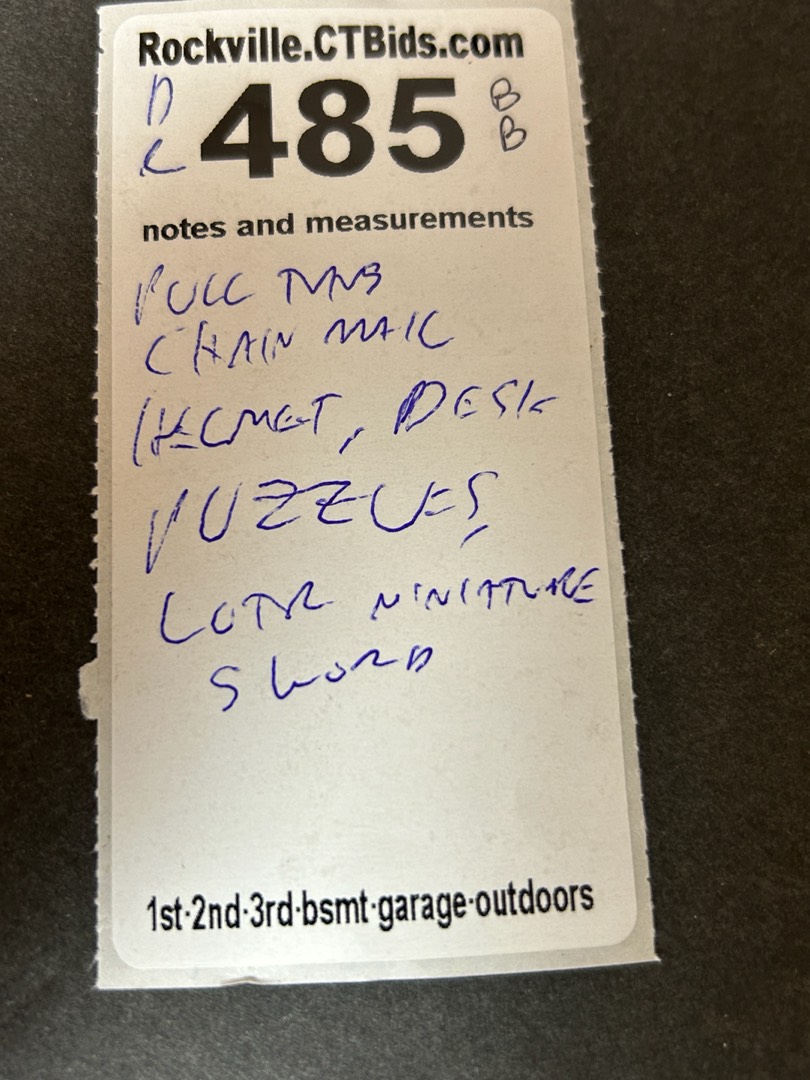 Rockville.CTBids.com
485
B
B
notes and measurements
PULL TABS
CHAIN MAIL
HELMET, DESK
PUZZLES,
LOTR MINIATURE
SWORD
1st·2nd·3rd·bsmt·garage·outdoors